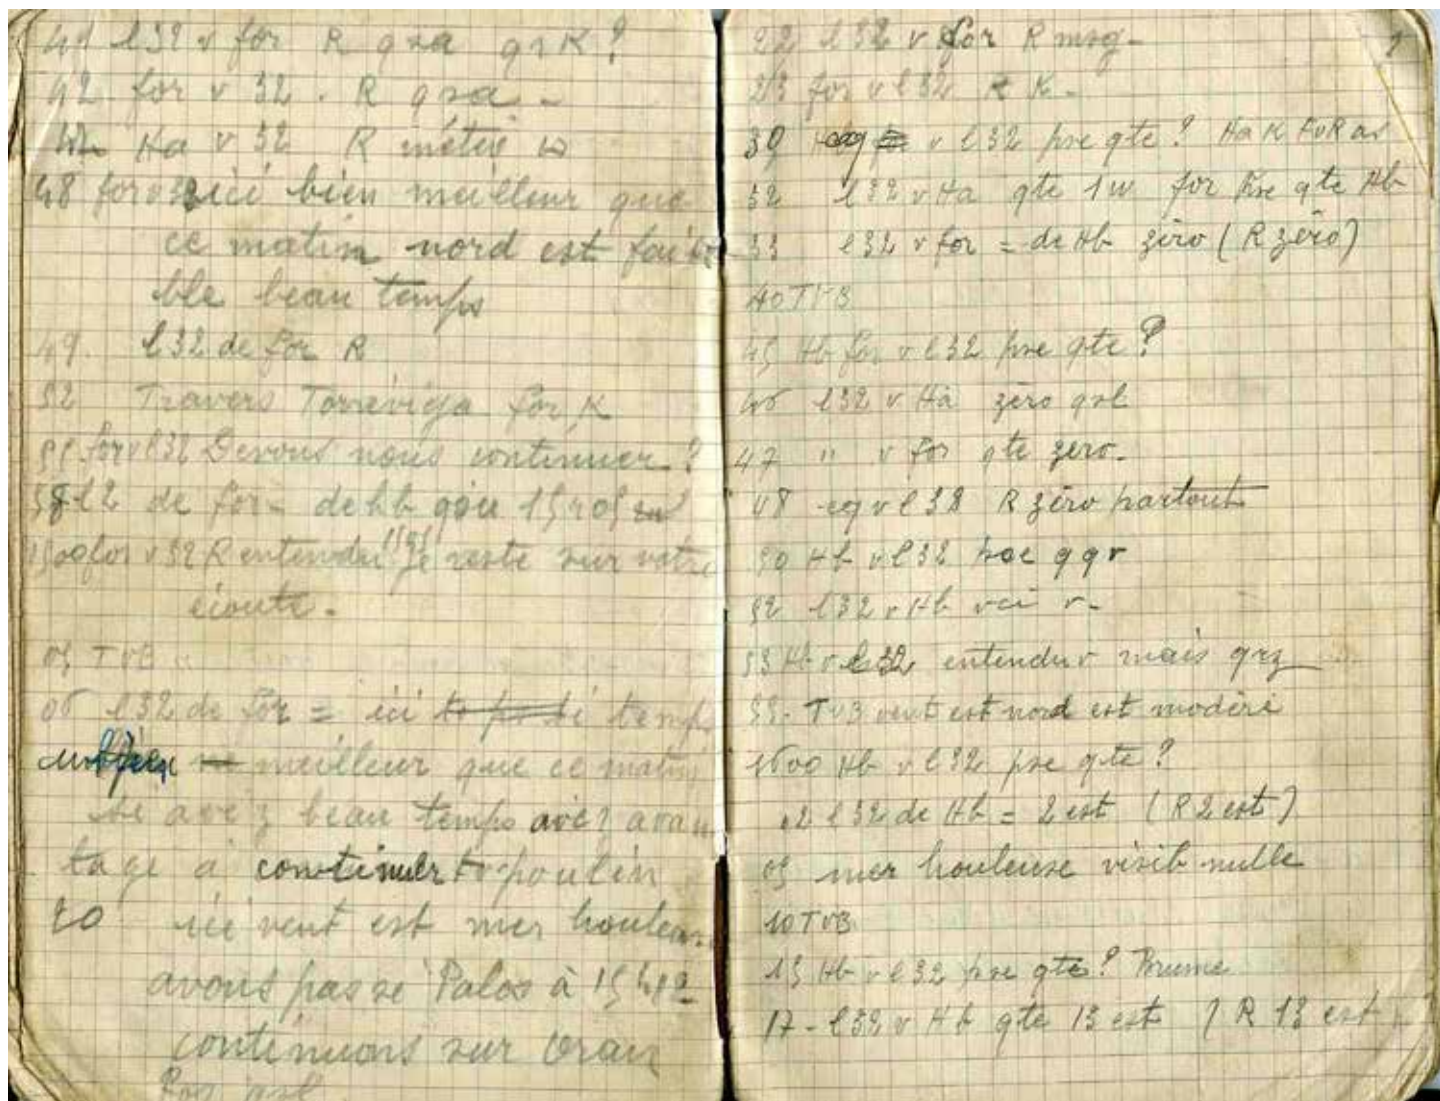 41 l32 v for R qra qrk?
42 for v 32. R qra -
Ha v 32 R météo
48 for v 32 ici bien meilleur que
ce matin nord est fai
ble beau temps
49. l32 de for R
52 Travers Torrevieja for K
55 for v l32 Devons nous continuer?
58 l2 de for - de hb
1500 for v 32 R entendu je reste sur votre
écoute -
05 TVB
06 l32 de for = ici temps
meilleur que ce matin
si avez beau temps avez avan
tage à continuer to poulin
20 ici vent est mer houleuse
avons passé Palos à 15h12
continuons sur Oran
22 l32 v for R msg -
23 for v l32 R K -
30 v l32 pse qte? Ha K
32 l32 v Ha qte for pse qte Hb
33 l32 v for = de Hb zéro (R zéro)
40 TVB
45 Hb for v l32 pse qte?
46 l32 v Ha zéro qsl
47 " v for qte zéro -
48 eq v l32 R zéro partout
50 Hb v l32 pse
52 l32 v Hb
53 Hb v l32 entendu mais qrz
55 - TVB vent est nord est modéré
1600 Hb v l32 pse qte?
02 l32 de Hb = 2 est (R 2 est)
05 mer houleuse visib nulle
10 TVB
15 Hb v l32 pse qte? Brume
17 - l32 v Hb qte 13 est (R 13 est